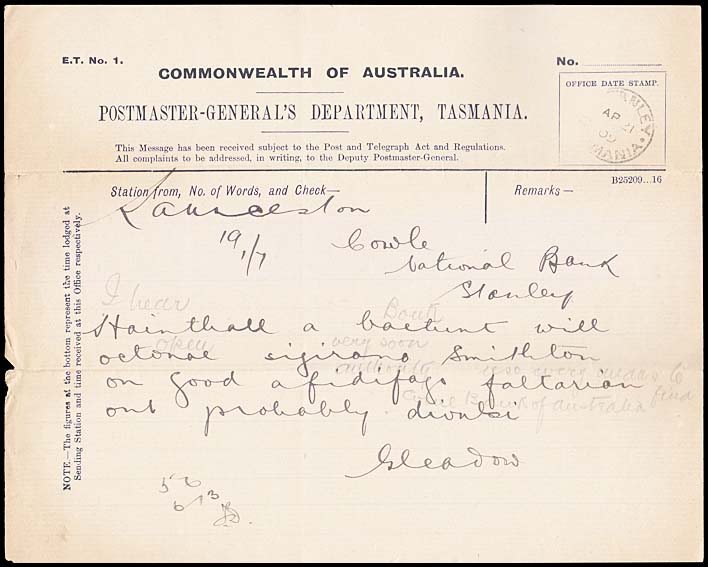 E.T. No. 1.
No.
COMMONWEALTH OF AUSTRALIA.
OFFICE DATE STAMP.
POSTMASTER-GENERAL'S DEPARTMENT, TASMANIA.
AP 21
This Message has been received subject to the Post and Telegraph Act and Regulations.
All complaints to be addressed, in writing, to the Deputy Postmaster-General.
B25209...16
Station from, No. of Words, and Check—
Remarks—
Launceston
19 1/7
Cowle
National Bank
Stanley
I hear
Bank
Hainthall a bactunt will
open
very soon
octonae sigirano Smithton
authority
use every means to
on good afidifago faltarian
find
Bank of Australia
out probably dionksi
Gleadow
NOTE.—The figures at the bottom represent the time lodged at
Sending Station and time received at this Office respectively.